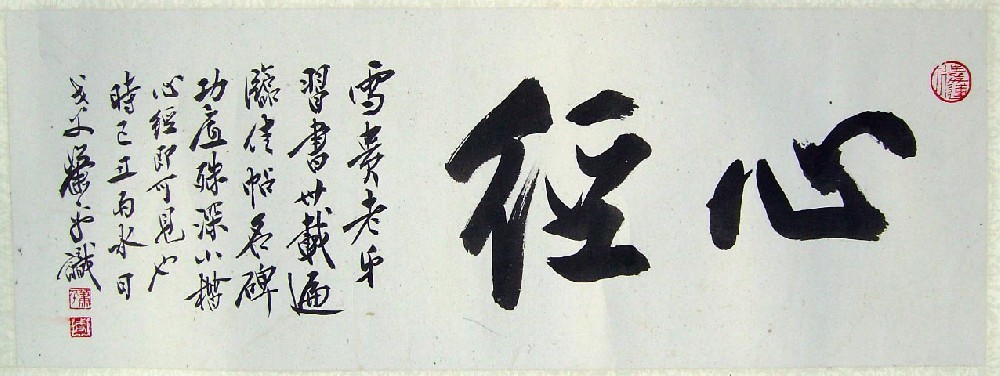 心經
雪貴老弟
習書廿載遍
臨佳帖名碑
功底殊深小楷
心經即可見也
時己丑雨水日
識